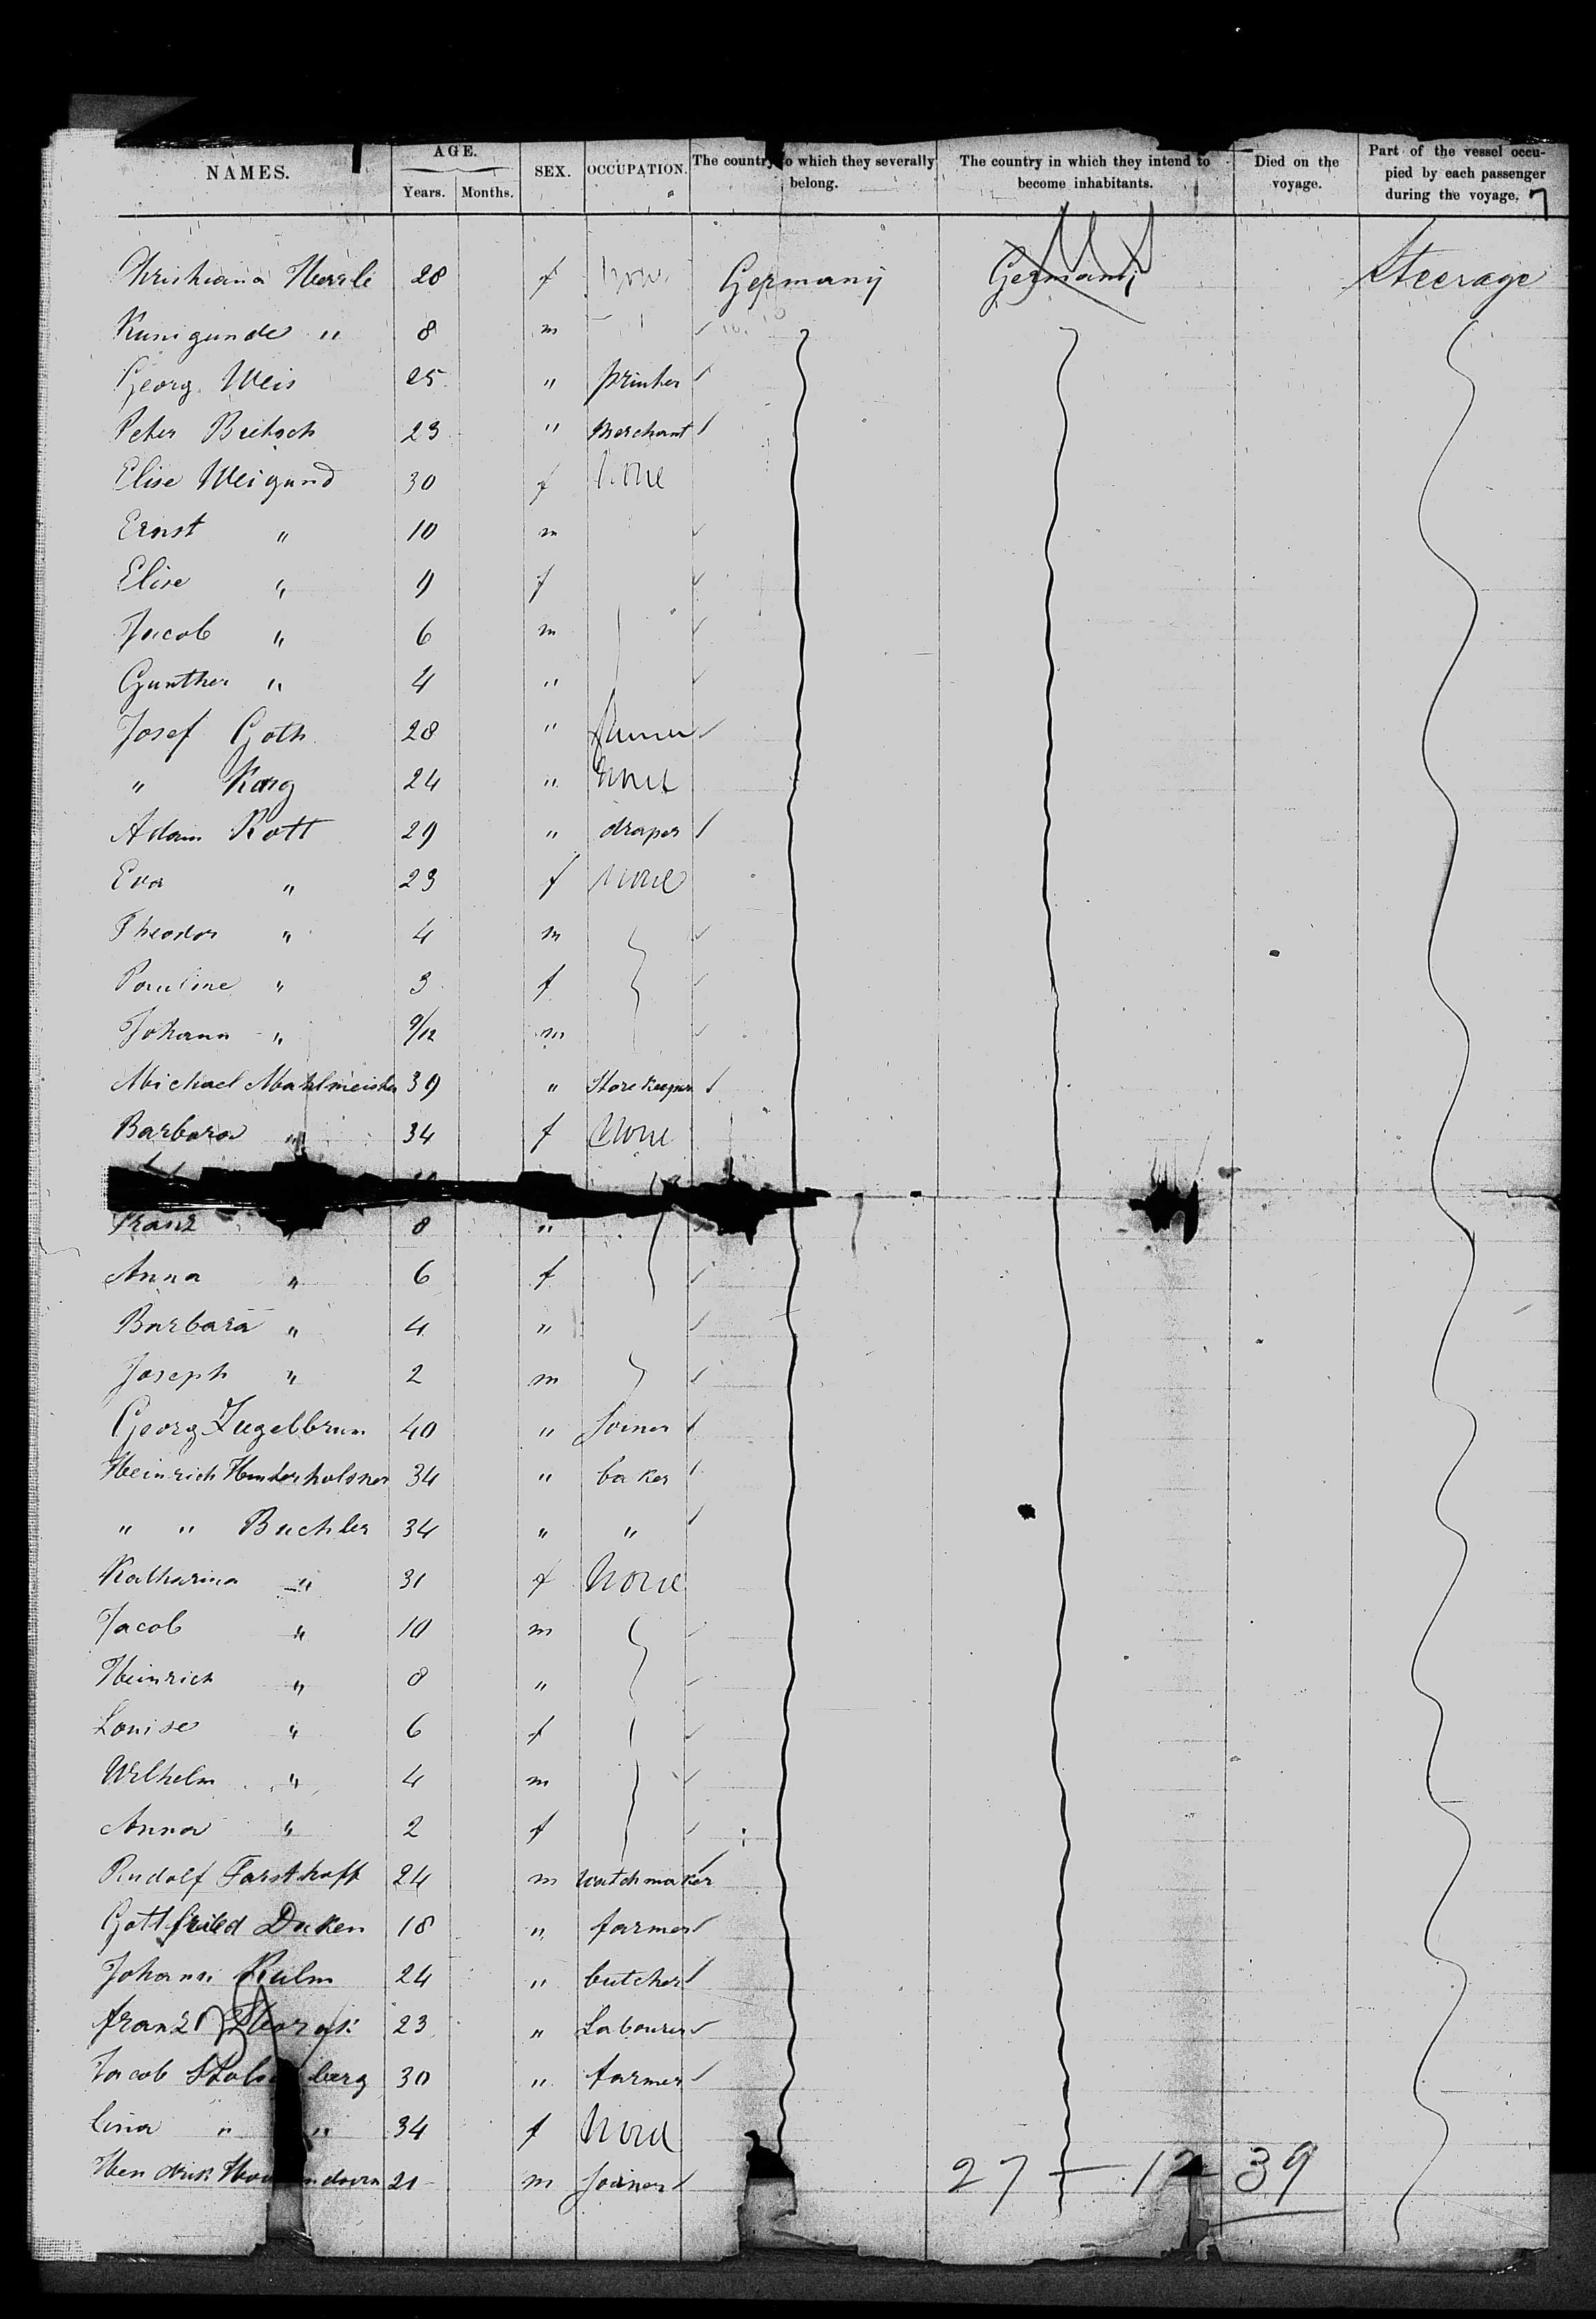 NAMES. AGE. Years. Months. SEX. OCCUPATION. The country to which they severally belong. The country in which they intend to become inhabitants. Died on the voyage. Part of the vessel occupied by each passenger during the voyage. 7
Christiana 28 f None Germany Germany Steerage
Kunigunde " 8 m
Georg Weis 25 " printer
Peter 23 " Merchant
Elise Weigand 30 f None
Ernst " 10 m
Elise " 9 f
Jacob " 6 m
Gunther " 4 "
Josef Goth 28 " farmer
" Karg 24 " None
Adam Rott 29 " draper
Eva " 23 f None
Theodor " 4 m
Pauline " 3 f
Johann " 9/12 m
Michael Mahlmeister 39 " Storekeeper
Barbara " 34 f None
Franz 8 "
Anna " 6 f
Barbara " 4 "
Joseph " 2 m
Georg 40 " Joiner
Heinrich 34 " baker
" " Buchler 34 " "
Katharina " 31 f None
Jacob " 10 m
Heinrich " 8 "
Louise " 6 f
Wilhelm " 4 m
Anna " 2 f
Rudolf Forsthoff 24 m watchmaker
Gottfried Duken 18 " farmer
Johann 24 " butcher
franz 23 " Labourer
Jacob 30 " farmer
Lina " " 34 f None
Hendrik 21 m Joiner
27 — 12 39